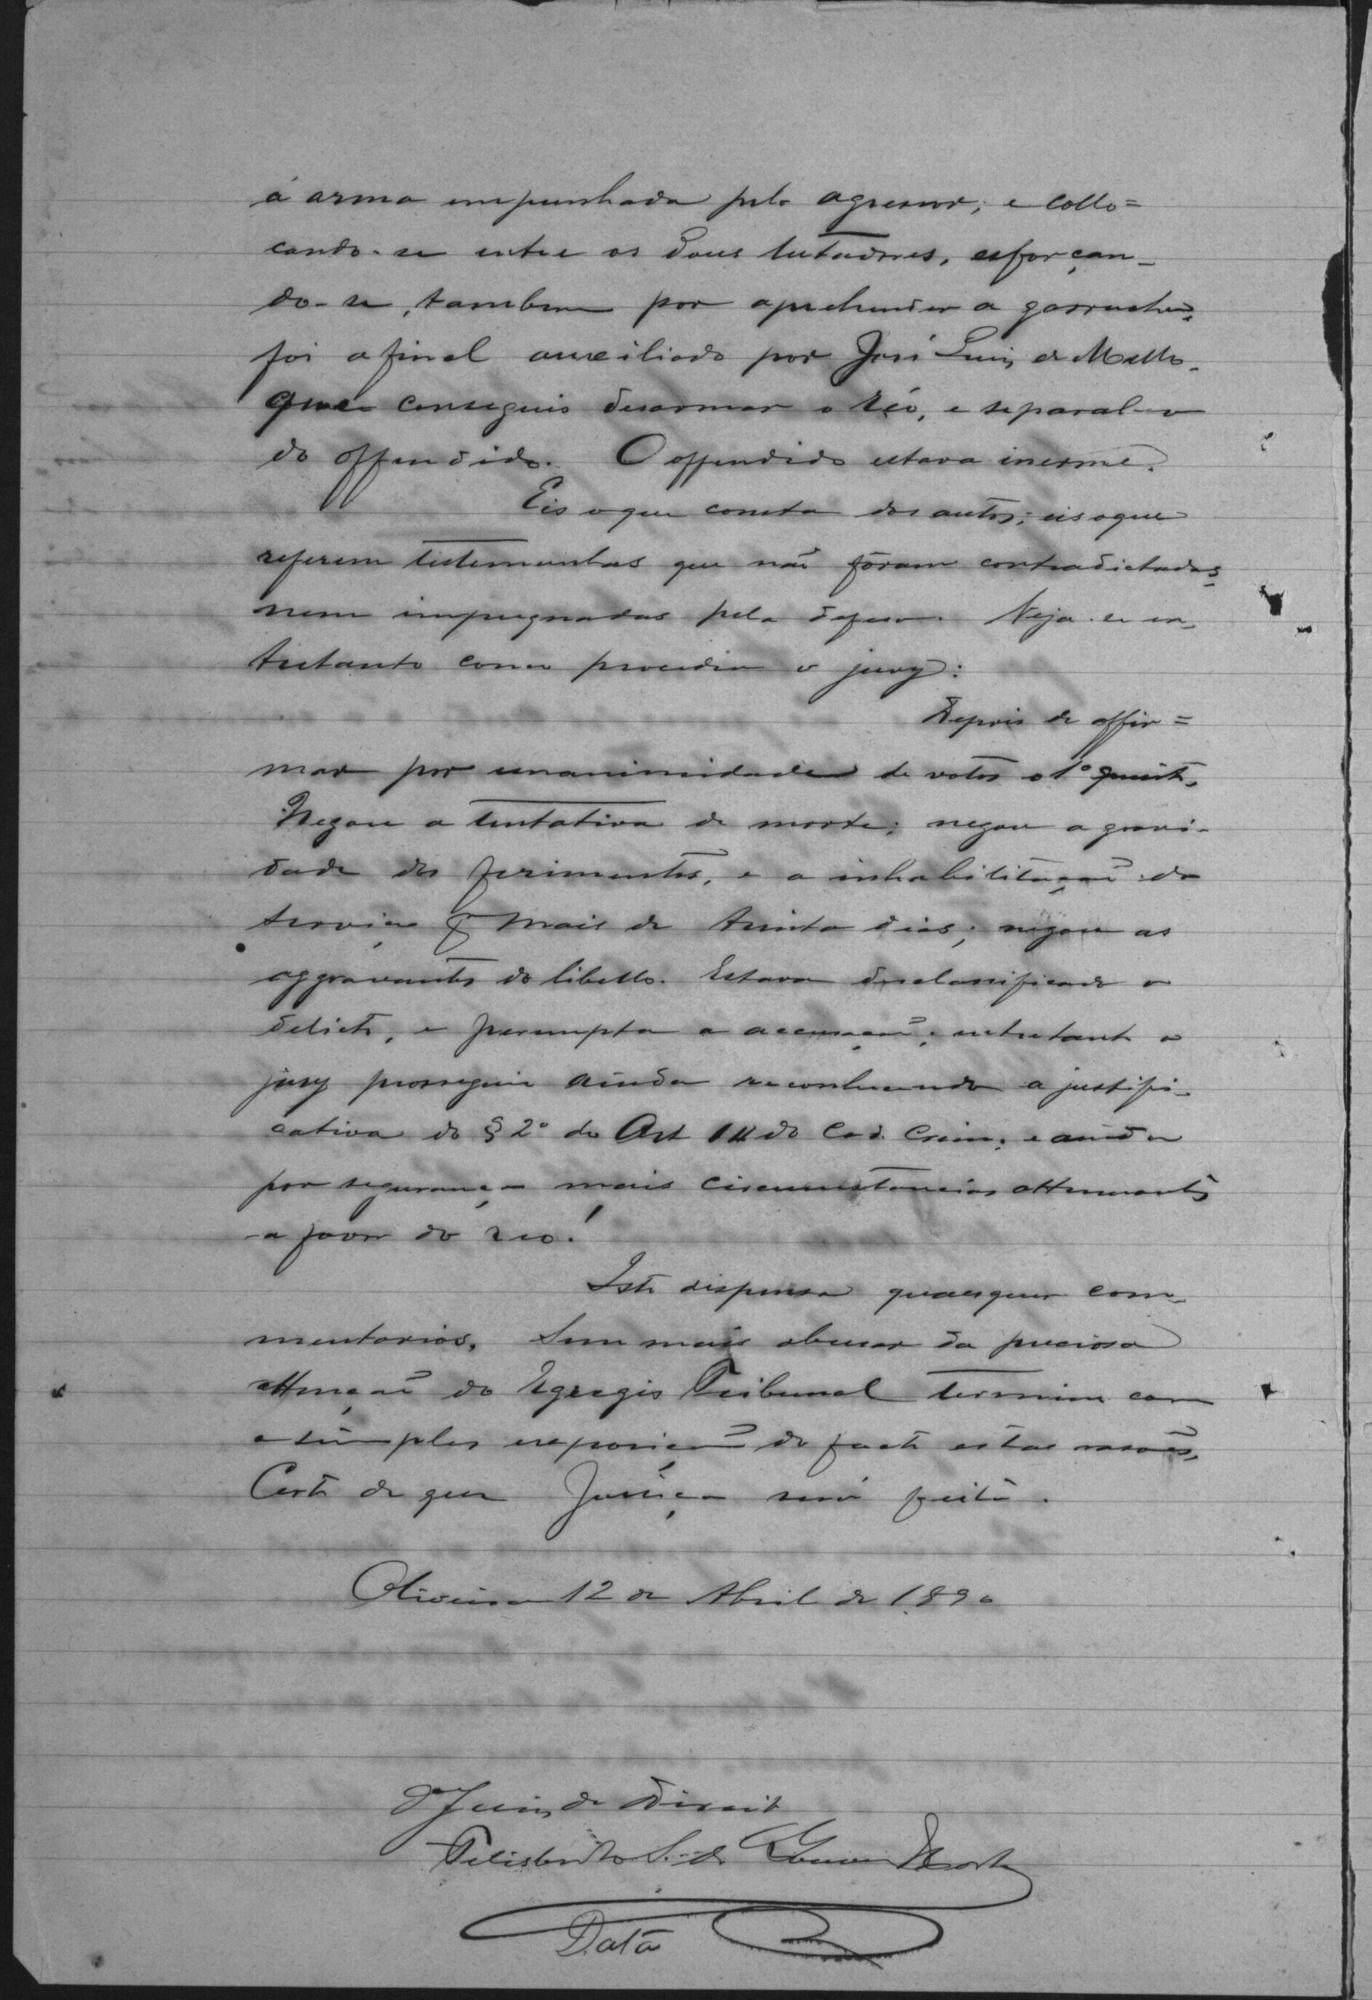 á arma empunhada pelo agressor; e collo=
cando-se entre os dous lutadores, esforçan-
do-se, tambem por aprehender a garrucha,
foi afinal auxiliado por José Luiz de Mello,
que conseguio desarmar o réo, e separal-o
do offendido. O offendido estava inerme.
Eis o que consta dos autos; eis o que
referem testemunhas que não fôram contradictadas,
nem impugnadas pela defesa. Veja-se en-
tretanto como procedeu o jury:
Depois de affir=
mar por unanimidade de votos o 1º quesito,
Negou a tentativa de morte; negou a gravi-
dade dos ferimentos, e a inhabilitação do
serviço p mais de trinta dias; negou as
aggravantes do libello. Estava desclassificado o
delicto, e perempta a accusação; entretanto o
jury prosseguiu ainda reconhecendo a justifi-
cativa do § 2º do Art 14 do Cod. Crim. e ainda
por segurança mais circumstancias attenuantes
a favor do réo!
Isto dispensa quaesquer com-
mentarios. Sem mais abusar da preciosa
attenção do Egregio Tribunal termino com
a simples exposição do facto estas rasões,
Certo de que Justiça será feita.
Oliveira 12 de Abril de 1890
O Juiz de Direito
Data